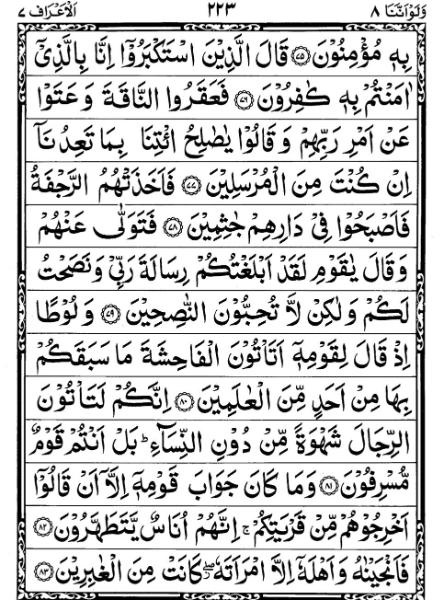 وَلَوْاَنَّنَا ٨ ٢٢٣ اَلْاَعْرَاف ٧
بِهٖ مُؤْمِنُوْنَ ﴿٧٥﴾ قَالَ الَّذِيْنَ اسْتَكْبَرُوْٓا اِنَّا بِالَّذِيْٓ
اٰمَنْتُمْ بِهٖ كٰفِرُوْنَ ﴿٧٦﴾ فَعَقَرُوا النَّاقَةَ وَعَتَوْا
عَنْ اَمْرِ رَبِّهِمْ وَقَالُوْا يٰصٰلِحُ ائْتِنَا بِمَا تَعِدُنَآ
اِنْ كُنْتَ مِنَ الْمُرْسَلِيْنَ ﴿٧٧﴾ فَاَخَذَتْهُمُ الرَّجْفَةُ
فَاَصْبَحُوْا فِيْ دَارِهِمْ جٰثِمِيْنَ ﴿٧٨﴾ فَتَوَلّٰى عَنْهُمْ
وَقَالَ يٰقَوْمِ لَقَدْ اَبْلَغْتُكُمْ رِسَالَةَ رَبِّيْ وَنَصَحْتُ
لَكُمْ وَلٰكِنْ لَّا تُحِبُّوْنَ النّٰصِحِيْنَ ﴿٧٩﴾ وَلُوْطًا
اِذْ قَالَ لِقَوْمِهٖٓ اَتَاْتُوْنَ الْفَاحِشَةَ مَا سَبَقَكُمْ
بِهَا مِنْ اَحَدٍ مِّنَ الْعٰلَمِيْنَ ﴿٨٠﴾ اِنَّكُمْ لَتَاْتُوْنَ
الرِّجَالَ شَهْوَةً مِّنْ دُوْنِ النِّسَآءِ ؕ بَلْ اَنْتُمْ قَوْمٌ
مُّسْرِفُوْنَ ﴿٨١﴾ وَمَا كَانَ جَوَابَ قَوْمِهٖٓ اِلَّآ اَنْ قَالُوْٓا
اَخْرِجُوْهُمْ مِّنْ قَرْيَتِكُمْ ۚ اِنَّهُمْ اُنَاسٌ يَّتَطَهَّرُوْنَ ﴿٨٢﴾
فَاَنْجَيْنٰهُ وَاَهْلَهٗٓ اِلَّا امْرَاَتَهٗ ۖ كَانَتْ مِنَ الْغٰبِرِيْنَ ﴿٨٣﴾